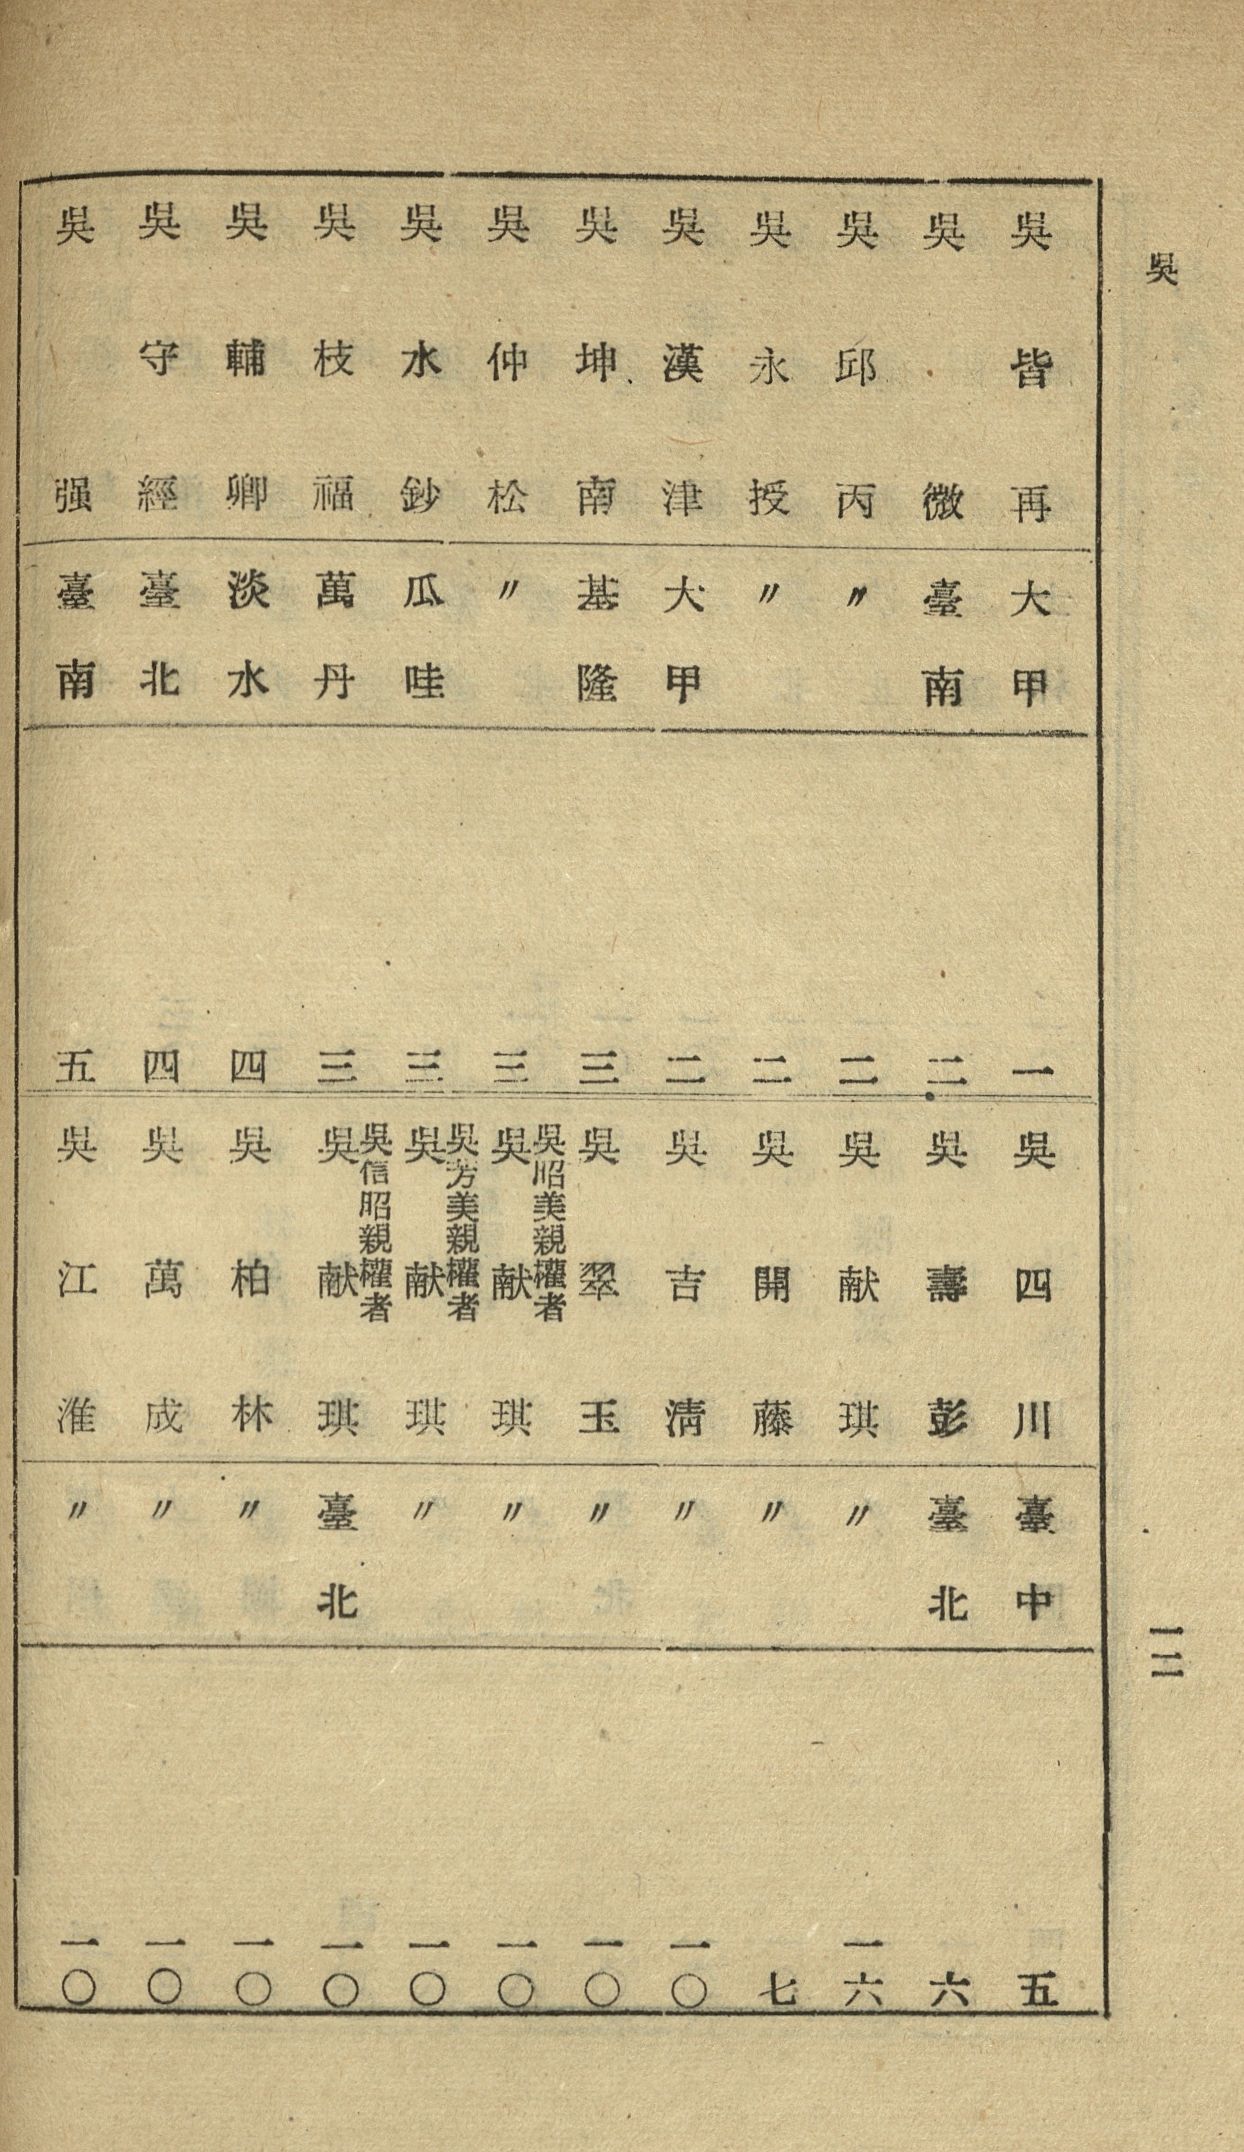 吳
一二
吳皆再 大甲 一
吳微 臺南 二
吳邱丙 〃 二
吳永授 〃 二
吳漢津 大甲 二
吳坤南 基隆 三
吳仲松 〃 三
吳水鈔 瓜哇 三
吳枝福 萬丹 三
吳輔卿 淡水 四
吳守經 臺北 四
吳强 臺南 五
吳四川 臺中 五
吳壽彭 臺北 六
吳献琪 〃 一六
吳開藤 〃 七
吳吉淸 〃 一〇
吳翠玉 〃 一〇
吳昭美親權者
吳献琪 〃 一〇
吳芳美親權者
吳献琪 〃 一〇
吳信昭親權者
吳献琪 臺北 一〇
吳柏林 〃 一〇
吳萬成 〃 一〇
吳江淮 〃 一〇